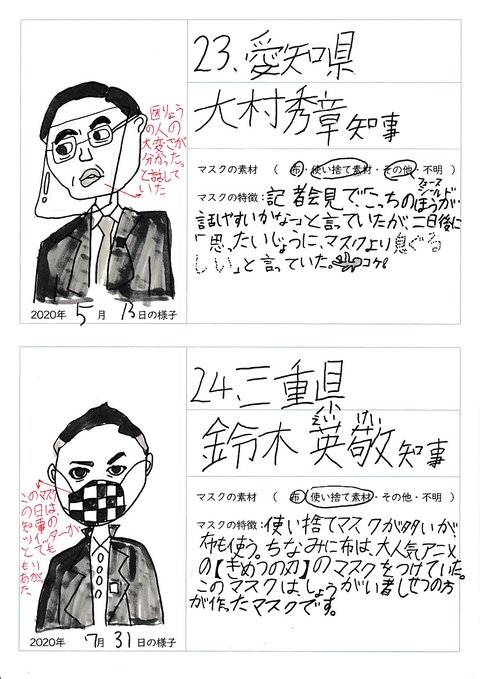 23.愛知県
大村秀章知事
医りょう
の人の
大変さが
分かった。
と話して
いた
マスクの素材 （ 布・使い捨て素材・その他・不明 ）
フェース
シールド
マスクの特徴：記者会見で「こっちのほうが
話しやすいかな～」と言っていたが、二日後に
「思ったいじょうに、マスクより息ぐる
しい」と言っていた。コケ!
2020年 5月 13日の様子
24.三重県
えい けい
鈴木 英敬知事
マスクの素材 （ 布・使い捨て素材・その他・不明 ）
このマスクは
この日の
知事の
ツイッターが
とても
もり
あがった
マスクの特徴：使い捨てマスクが多いが、
布も使う。ちなみに布は、大人気アニメ
の【きめつの刃】のマスクをつけていた。
このマスクは、しょうがい者しせつの方
が作ったマスクです。
2020年 7月 31日の様子